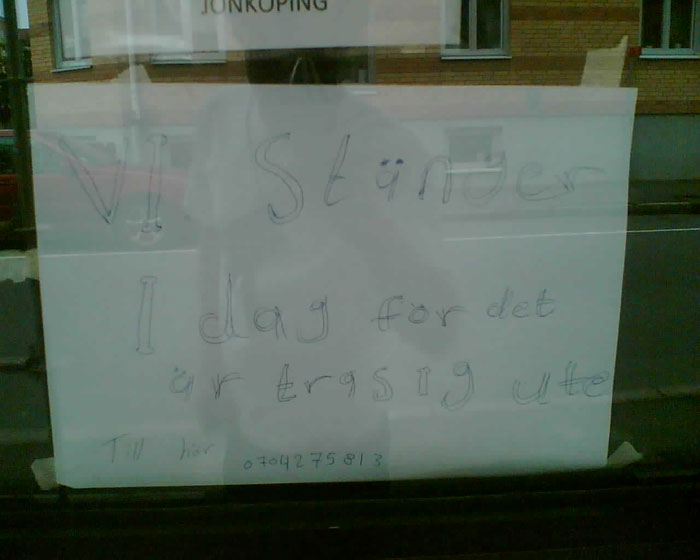 JÖNKÖPING
VI Stänger
I dag for det
är trasig ute
Till hör 0704275813